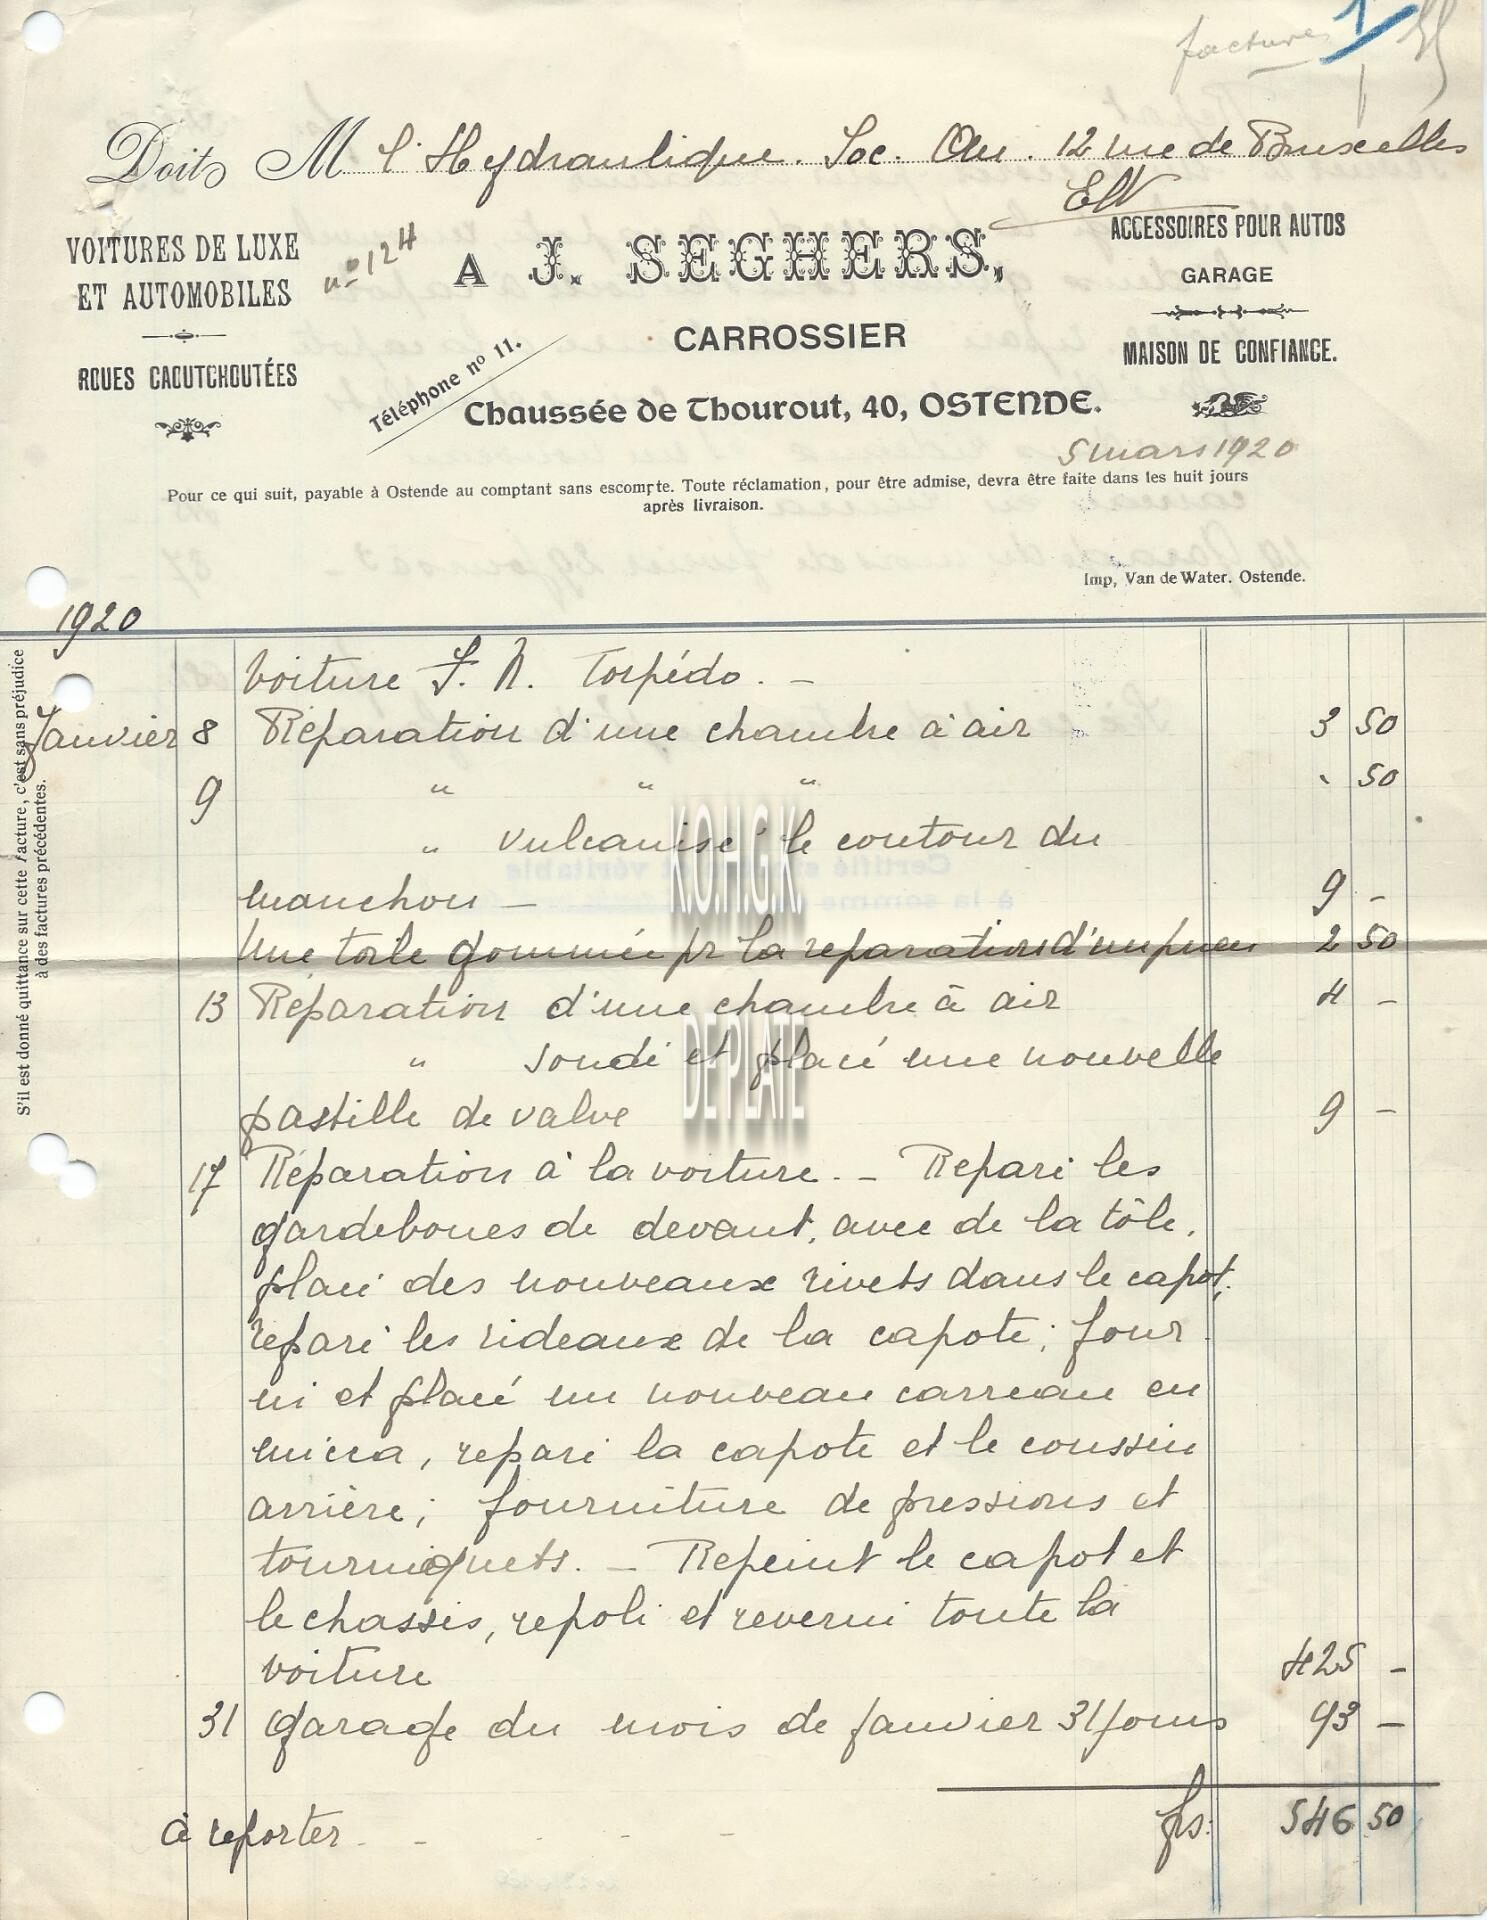 factures 1
Doit M l'Hydraulique. Soc. An. 12 rue de Bruxelles
E/V
VOITURES DE LUXE
ET AUTOMOBILES
ROUES CAOUTCHOUTÉES
nº 124
A J. SEGHERS,
CARROSSIER
Téléphone nº 11.
Chaussée de Thourout, 40, OSTENDE.
ACCESSOIRES POUR AUTOS
GARAGE
MAISON DE CONFIANCE.
5 mars 1920
Pour ce qui suit, payable à Ostende au comptant sans escompte. Toute réclamation, pour être admise, devra être faite dans les huit jours
après livraison.
Imp, Van de Water. Ostende.
1920
S'il est donné quittance sur cette facture, c'est sans préjudice
à des factures précédentes.
Voiture F. N. Torpédo. –
Janvier 8 Réparation d'une chambre à air 3 50
9 " " " . 50
" vulcanisé le contour du
manchon – 9 –
Une toile gommée pr la reparation d'un pneu 2 50
13 Réparation d'une chambre à air 4 –
" soudé et placé une nouvelle
pastille de valve 9 –
17 Réparation à la voiture. – Reparé les
gardeboues de devant, avec de la tôle,
placé des nouveaux rivets dans le capot,
reparé les rideaux de la capote; four
ni et placé un nouveau carreau en
micca, reparé la capote et le coussin
arrière; fourniture de pressions et
tourniquets. – Repeint le capot et
le chassis, repoli et reverni toute la
voiture 425 –
31 Garage du mois de Janvier 31 jours 93 –
à reporter frs: 546 50
K.O.H.G.K.
DE PLATE